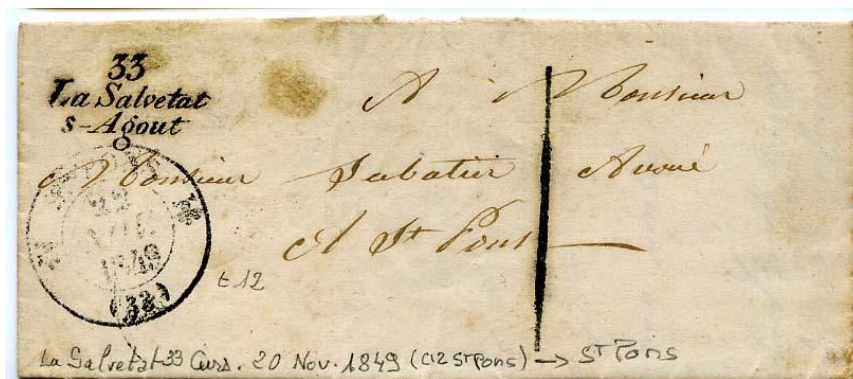 33
La Salvetat
s-Agout
A Monsieur
Monsieur Sabatier Avoué
A St Pons
22
1849
(32)
t.12
La Salvetat-33 Curs. 20 Nov. 1849 (C12 St Pons) → St Pons